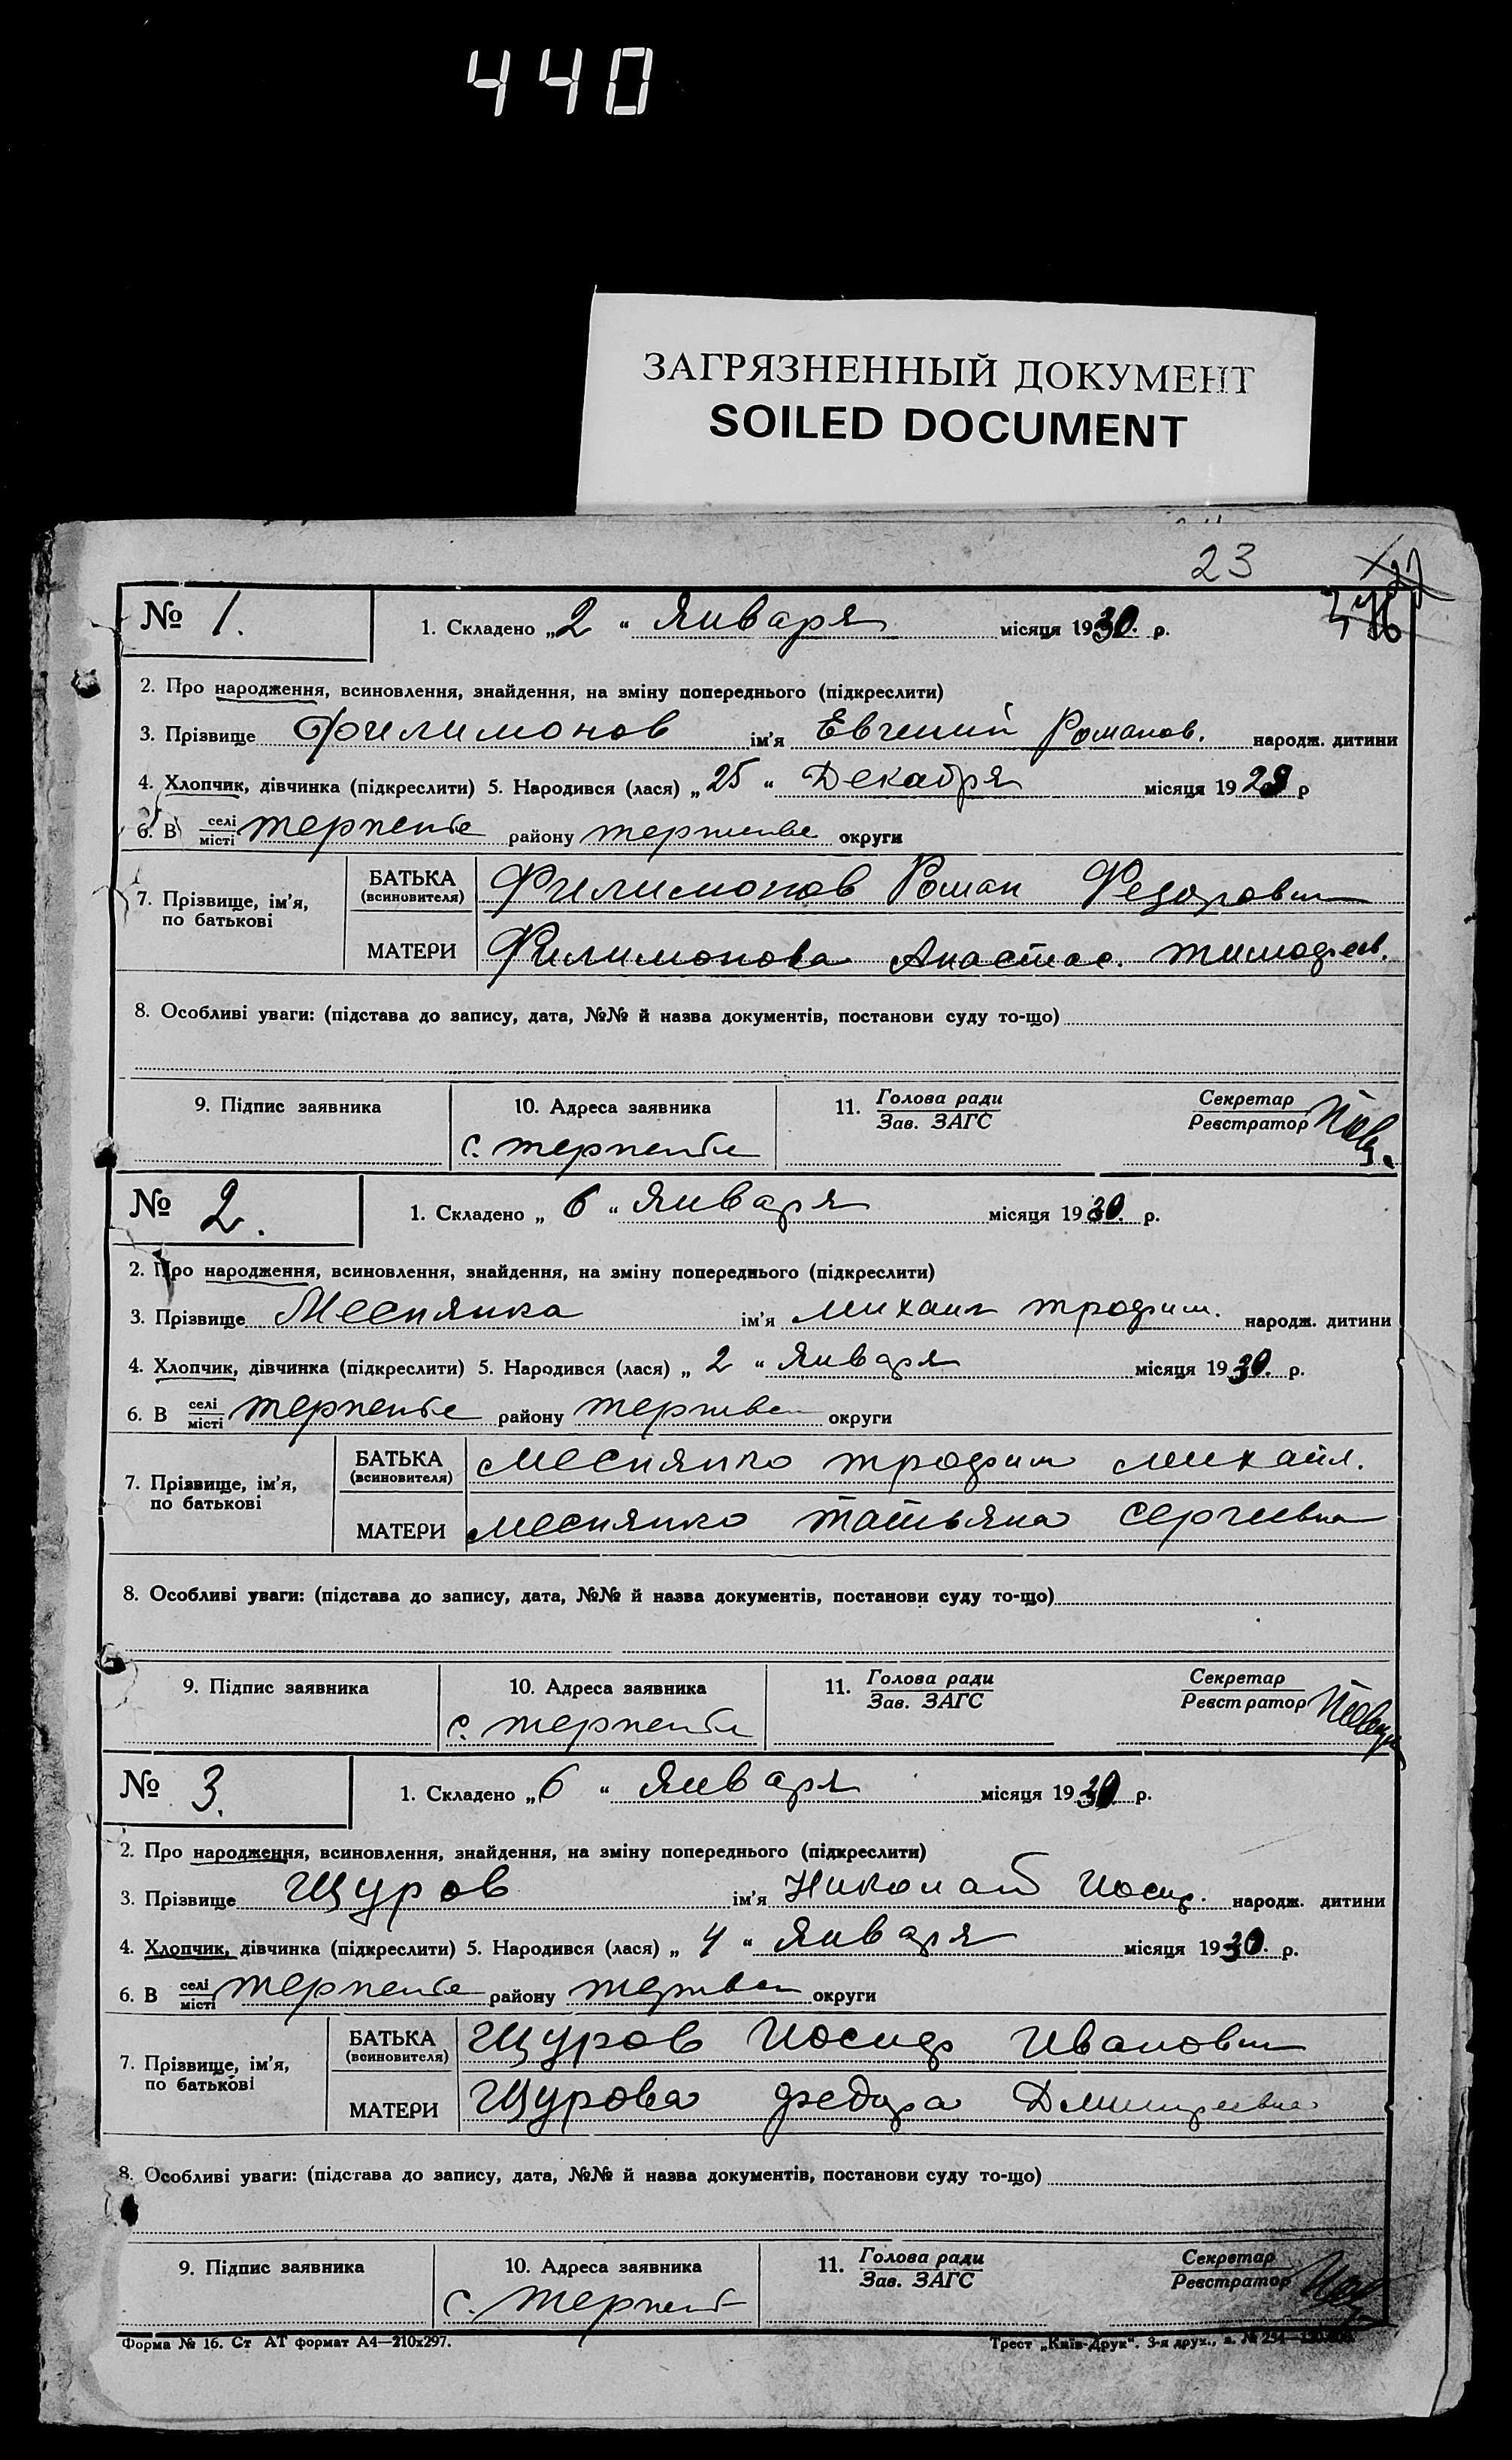 440
ЗАГРЯЗНЕННЫЙ ДОКУМЕНТ
SOILED DOCUMENT
23
№ 1.
1. Складено „2“ Января місяця 1930. р.
2. Про народження, всиновлення, знайдення, на зміну попереднього (підкреслити)
3. Прізвище Филимонов ім’я Евгений Романов. народж. дитини
4. Хлопчик, дівчинка (підкреслити) 5. Народився (лася) „25“ Декабря місяця 1929 р
6. В селі/місті Терпенье району округи
7. Прізвище, ім’я, по батькові
БАТЬКА (всиновителя) Филимонов Роман Федорович
МАТЕРИ Филимонова Анастас. Тимофеев.
8. Особливі уваги: (підстава до запису, дата, №№ й назва документів, постанови суду то-що)
9. Підпис заявника 10. Адреса заявника 11. Голова ради/Зав. ЗАГС Секретар/Реєстратор
с. Терпенье
№ 2.
1. Складено „6“ Января місяця 1930. р.
2. Про народження, всиновлення, знайдення, на зміну попереднього (підкреслити)
3. Прізвище Меснянка ім’я Михаил Трофим. народж. дитини
4. Хлопчик, дівчинка (підкреслити) 5. Народився (лася) „2“ Января місяця 1930. р.
6. В селі/місті Терпенье району округи
7. Прізвище, ім’я, по батькові
БАТЬКА (всиновителя) Меснянко Трофим Михайл.
МАТЕРИ Меснянко Татьяна Сергеевна
8. Особливі уваги: (підстава до запису, дата, №№ й назва документів, постанови суду то-що)
9. Підпис заявника 10. Адреса заявника 11. Голова ради/Зав. ЗАГС Секретар/Реєстратор
с. Терпенье
№ 3.
1. Складено „6“ Января місяця 1930 р.
2. Про народження, всиновлення, знайдення, на зміну попереднього (підкреслити)
3. Прізвище Щуров ім’я Николай Иосиф. народж. дитини
4. Хлопчик, дівчинка (підкреслити) 5. Народився (лася) „4“ Января місяця 1930. р.
6. В селі/місті Терпенье району округи
7. Прізвище, ім’я, по батькові
БАТЬКА (всиновителя) Щуров Иосиф Иванович
МАТЕРИ Щурова Федора Дмитреевна
8. Особливі уваги: (підстава до запису, дата, №№ й назва документів, постанови суду то-що)
9. Підпис заявника 10. Адреса заявника 11. Голова ради/Зав. ЗАГС Секретар/Реєстратор
с. Терпень
Форма № 16. Ст АТ формат А4—210х297. Трест „Київ-Друк“. 3-я друк., з. № 254